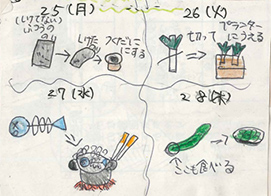 25(月)
(しけてない)
ふつうの
しけた
つくだにに
にする
26(火)
切って
プランター
にうえる
27(水)
28(木)
ここも食べる